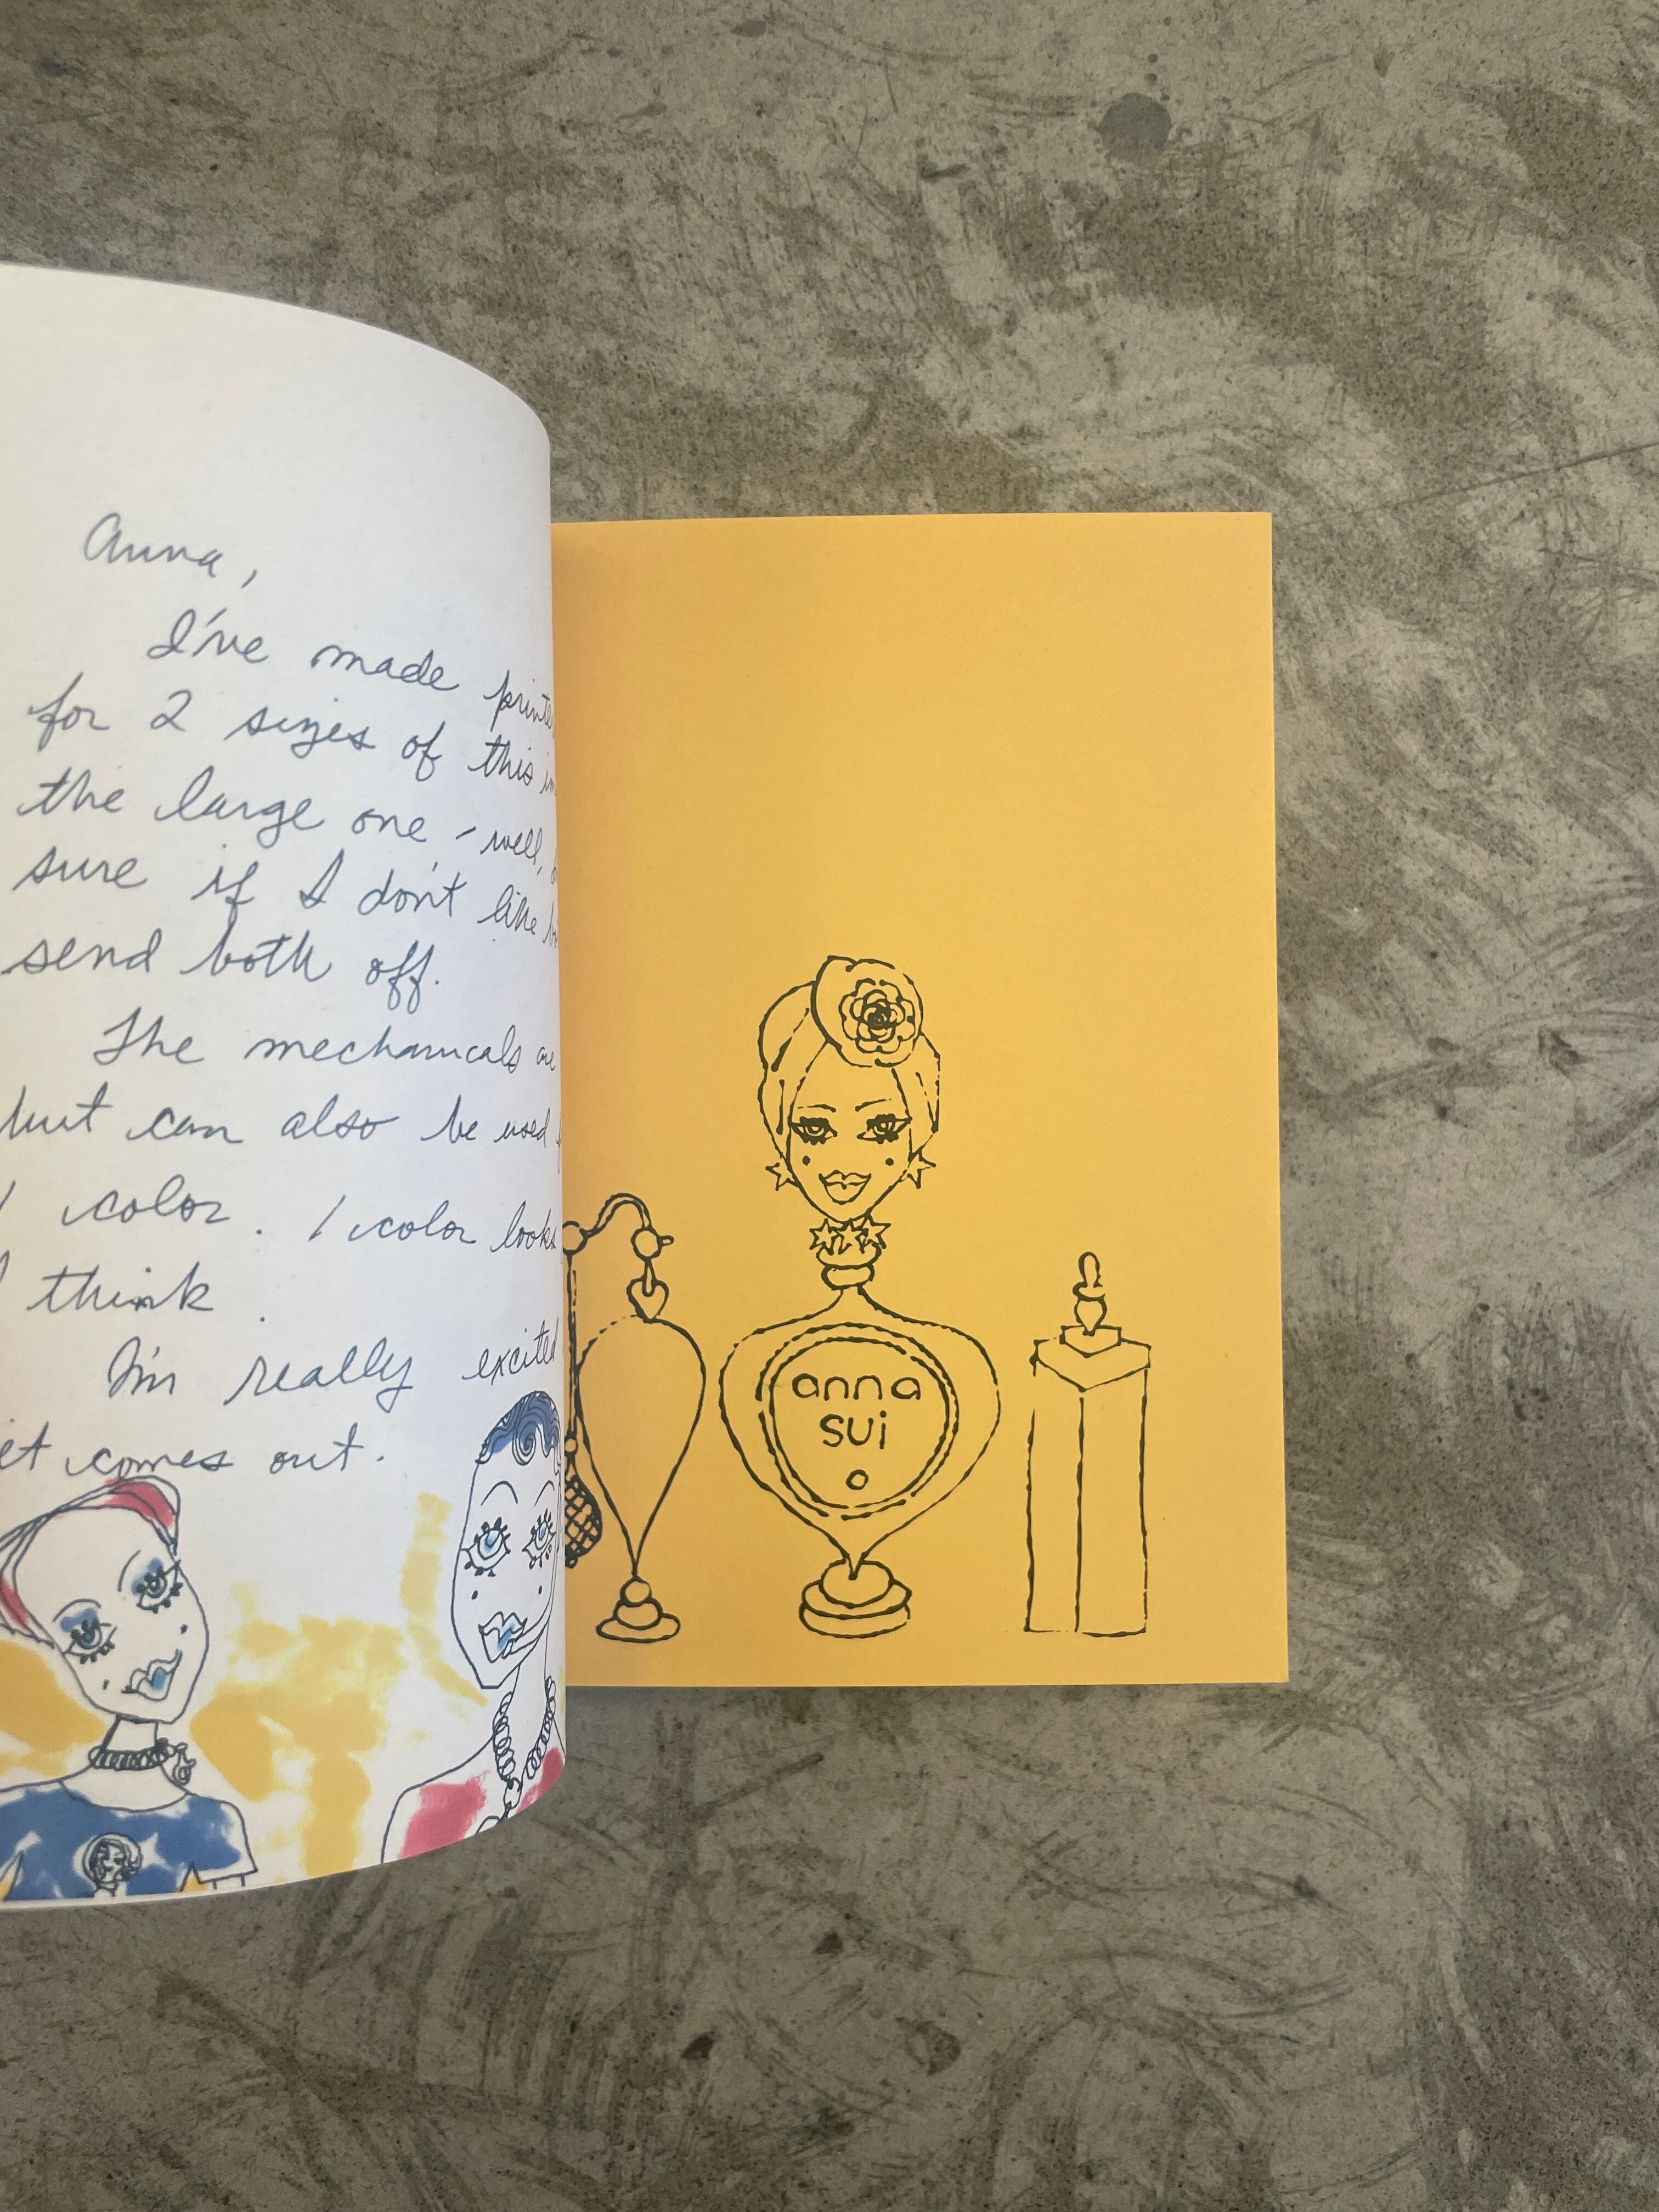 Anna,
I've made
for 2 sizes of this
the large one - well,
sure if I don't like
send both off.
The mechanicals are
but can also be used
1 color. 1 color looks
I think.
I'm really excited
comes out.
anna
sui